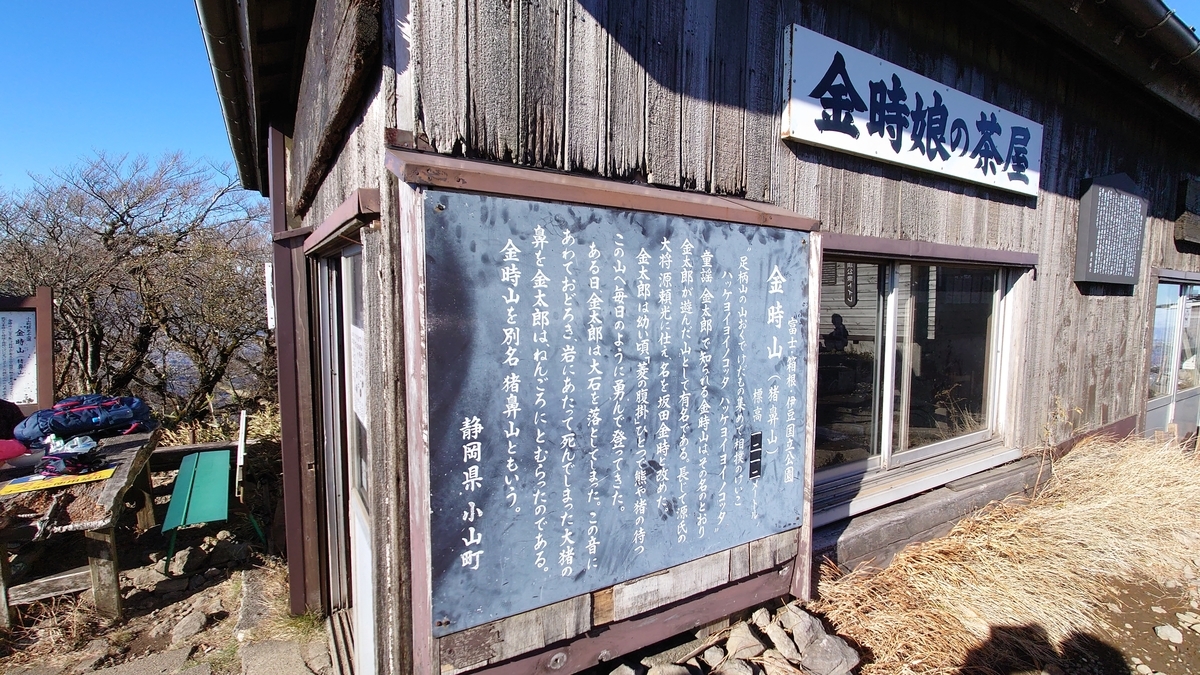 金時娘の茶屋
富士・箱根・伊豆国立公園
金時山（猪鼻山）
標高 一二一二メートル
足柄山の山おくでけだもの集めて相撲のけいこ
ハッケヨイヨイノコッタ ハッケヨイヨイノコッタ〟
童謡 金太郎で知られる金時山は、その名のとおり
金太郎が遊んだ山として有名である。長じて源氏の
大将源頼光に仕え、名を坂田金時と改めた。
金太郎は幼い頃「菱の腹掛」ひとつで熊や猪の待つ
この山へ毎日のように勇んで登ってきた。
ある日金太郎は大石を落としてしまった。この音に
あわておどろき、岩にあたって死んでしまった大猪の
鼻を金太郎はねんごろにとむらったのである。
金時山を別名 猪鼻山ともいう。
静岡県 小山町
金時山